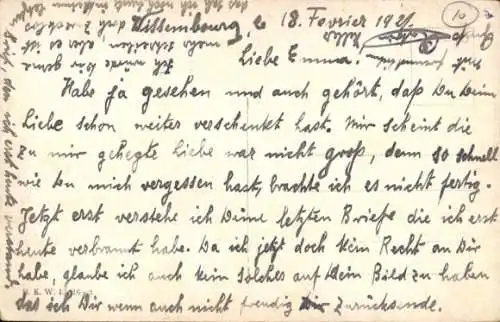 Wissembourg, le 18. Fevrier 1921.
Liebe Emma!
Habe ja gesehen und auch gehört, daß Du Deine
Liebe schon weiter verschenkt hast. Mir scheint die
zu mir gehegte Liebe war nicht groß, denn so schnell
wie Du mich vergessen hast, brachte ich es nicht fertig.
Jetzt erst verstehe ich Deine letzten Briefe die ich erst
heute verbrannt habe. Da ich jetzt doch kein Recht an Dir
habe, glaube ich auch kein Solches auf Dein Bild zu haben
das ich Dir wenn auch nicht freudig zurücksende.
Brief, den ich erst heute verstand
Ich würde Dir gerne
mehr schreiben aber es ist
doch